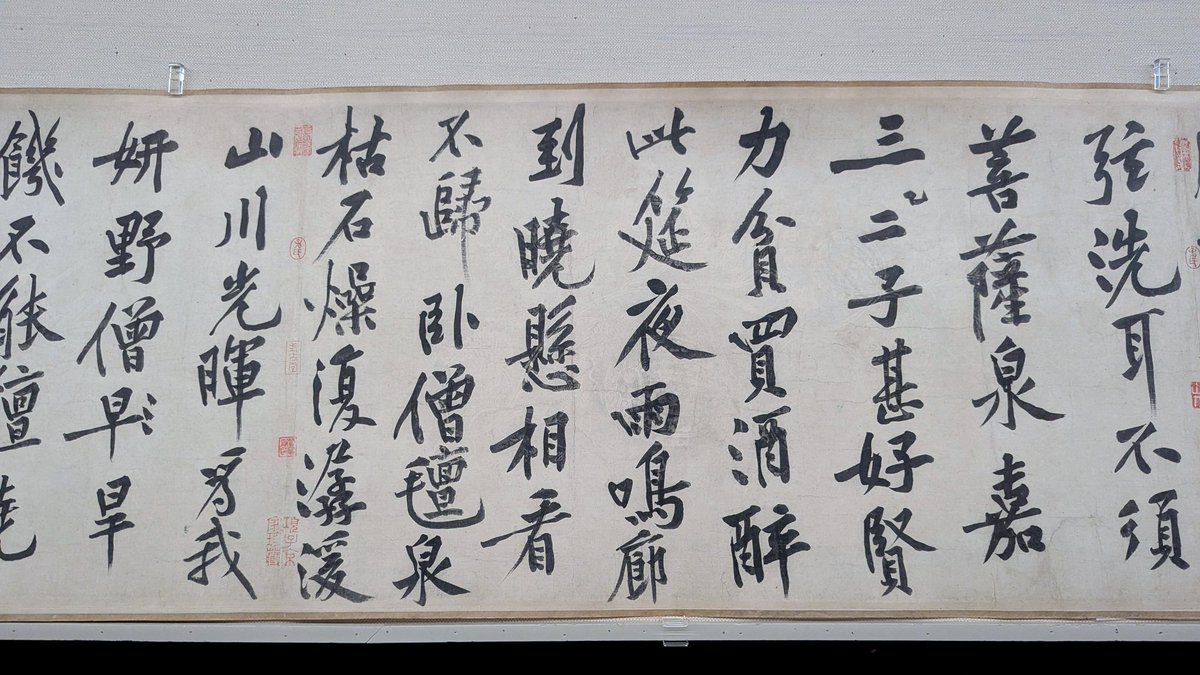 弦洗耳不須
菩薩泉嘉
三二子甚好賢
力貧買酒醉
此筵夜雨鳴廊
到曉懸相看
不歸臥僧氊泉
枯石燥復潺湲
山川光暉為我
妍野僧早旱
饑不能饘曉